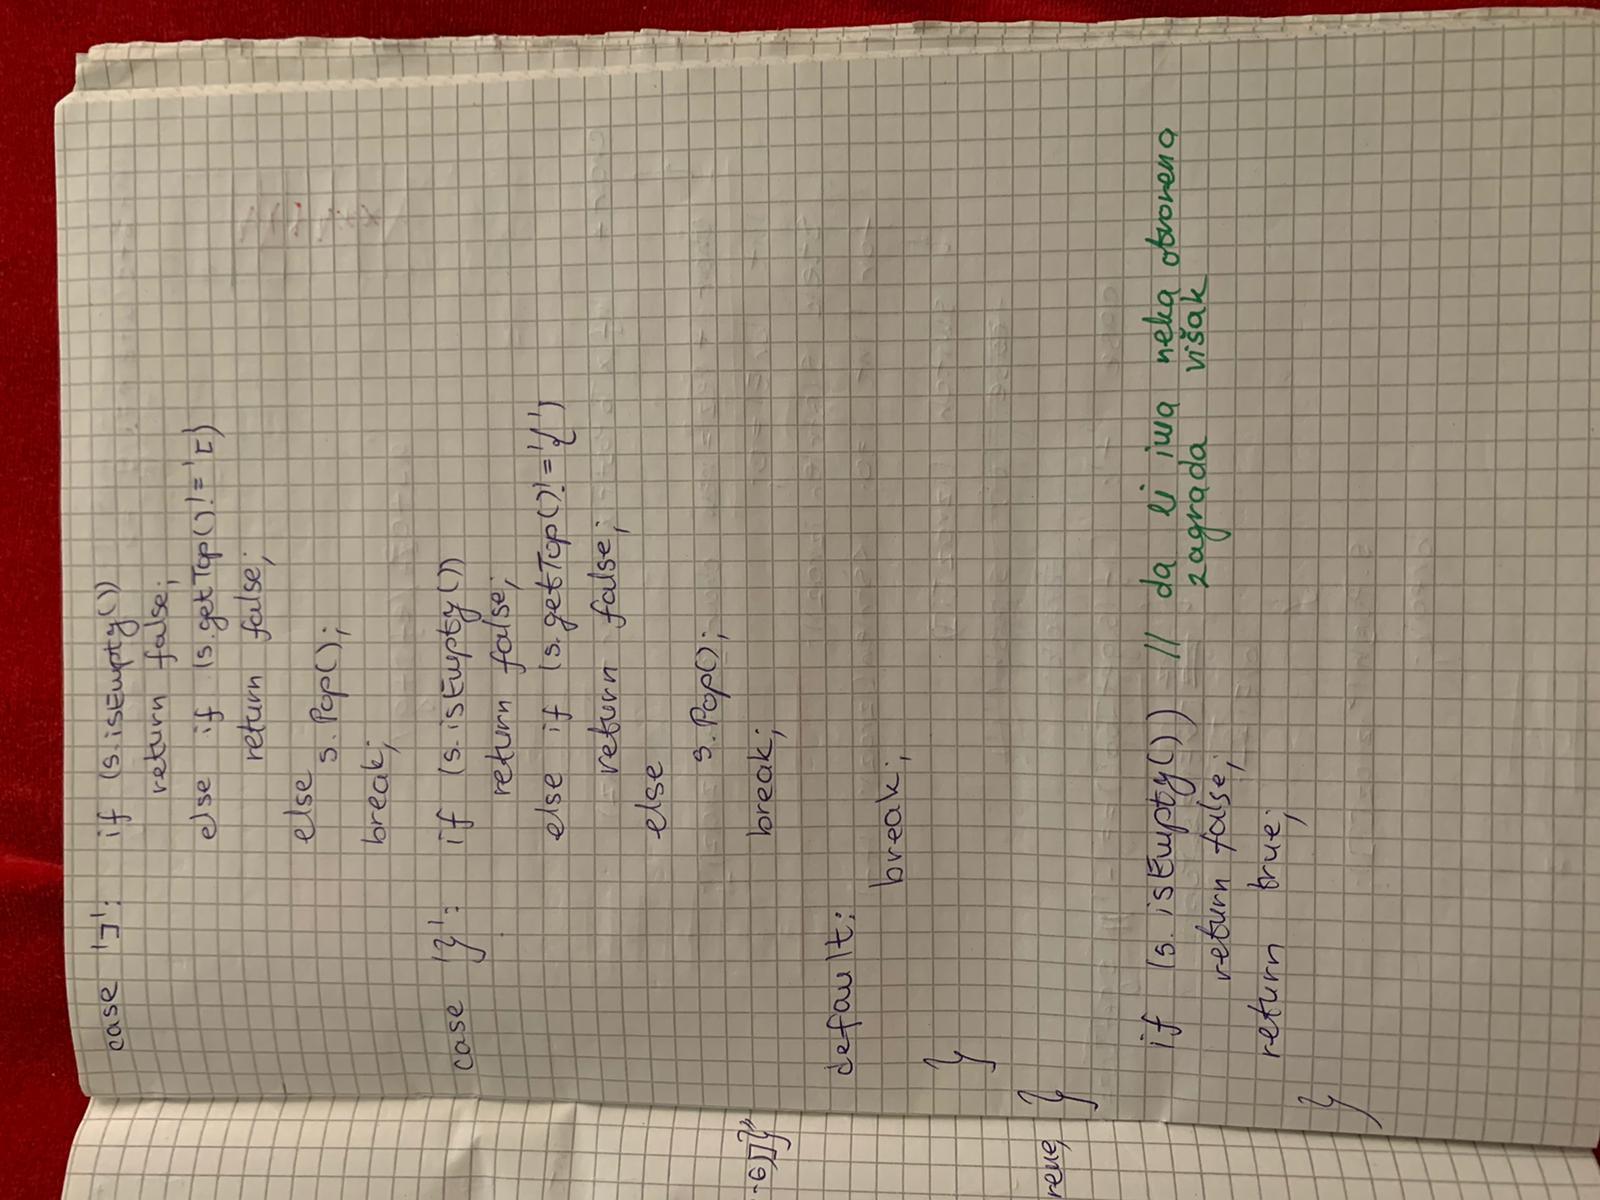 case ']': if (s.isEmpty())
return false;
else if (s.getTop() != '[)
return false;
else
s.Pop();
break;
case '}': if (s.isEmpty())
return false;
else if (s.getTop() != '{')
return false;
else
s.Pop();
break;
default:
break;
}
}
if (s.isEmpty()) // da li ima neka otvorena
return false; zagrada višak
return true;
}
-6)]}"
rene,